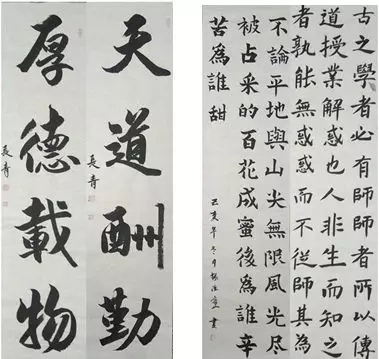 天道酬勤
長青
厚德載物
長青
古之學者必有師師者所以傳
道授業解惑也人非生而知之
者孰能無惑惑而不從師其為
不論平地與山尖無限風光尽
被占采的百花成蜜後為誰辛
苦為誰甜
己亥年冬月 書